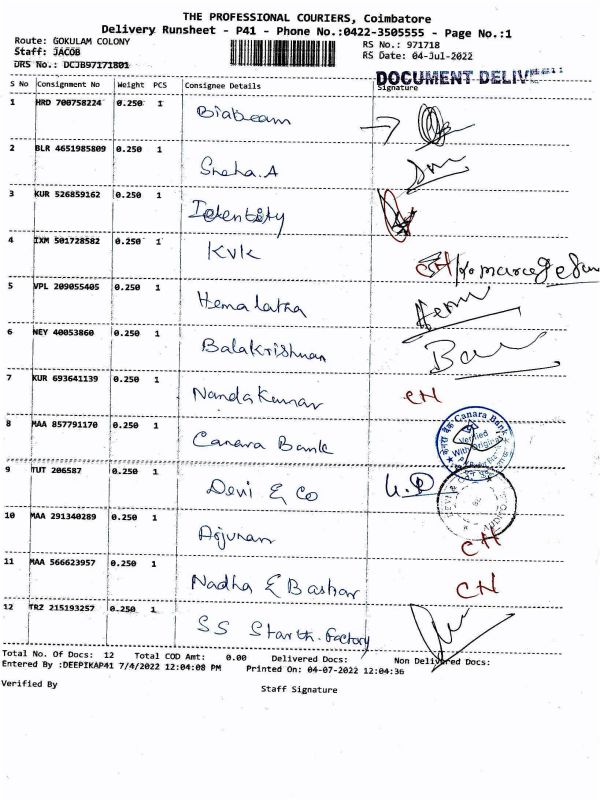 THE PROFESSIONAL COURIERS, Coimbatore
Delivery Runsheet - P41 - Phone No.:0422-3505555 - Page No.:1
Route: GOKULAM COLONY RS No.: 971718
Staff: JACOB RS Date: 04-Jul-2022
DRS No.: DCJB97171801
DOCUMENT DELIV
S No Consignment No Weight PCS Consignee Details Signature
1 HRD 700758224 0.250 1
2 BLR 4651985809 0.250 1 Sneha.A
3 KUR 526859162 0.250 1 Identity
4 IXM 501728582 0.250 1 KVK CH
5 VPL 209055405 0.250 1 Hemalatha Hem
6 NEY 40053860 0.250 1 Balakrishnan
7 KUR 693641139 0.250 1 Nandakumar CH
8 MAA 857791170 0.250 1 Canara Bank
केनरा बैंक Canara Bank
Verified
With Original
9 TUT 206587 0.250 1 Devi & Co
10 MAA 291340289 0.250 1 Arjunan CH
11 MAA 566623957 0.250 1 Nadha & Bashar CH
12 TRZ 215193257 0.250 1 SS Starth. Factory
Total No. Of Docs: 12 Total COD Amt: 0.00 Delivered Docs: Non Delivered Docs:
Entered By :DEEPIKAP41 7/4/2022 12:04:08 PM Printed On: 04-07-2022 12:04:36
Verified By Staff Signature